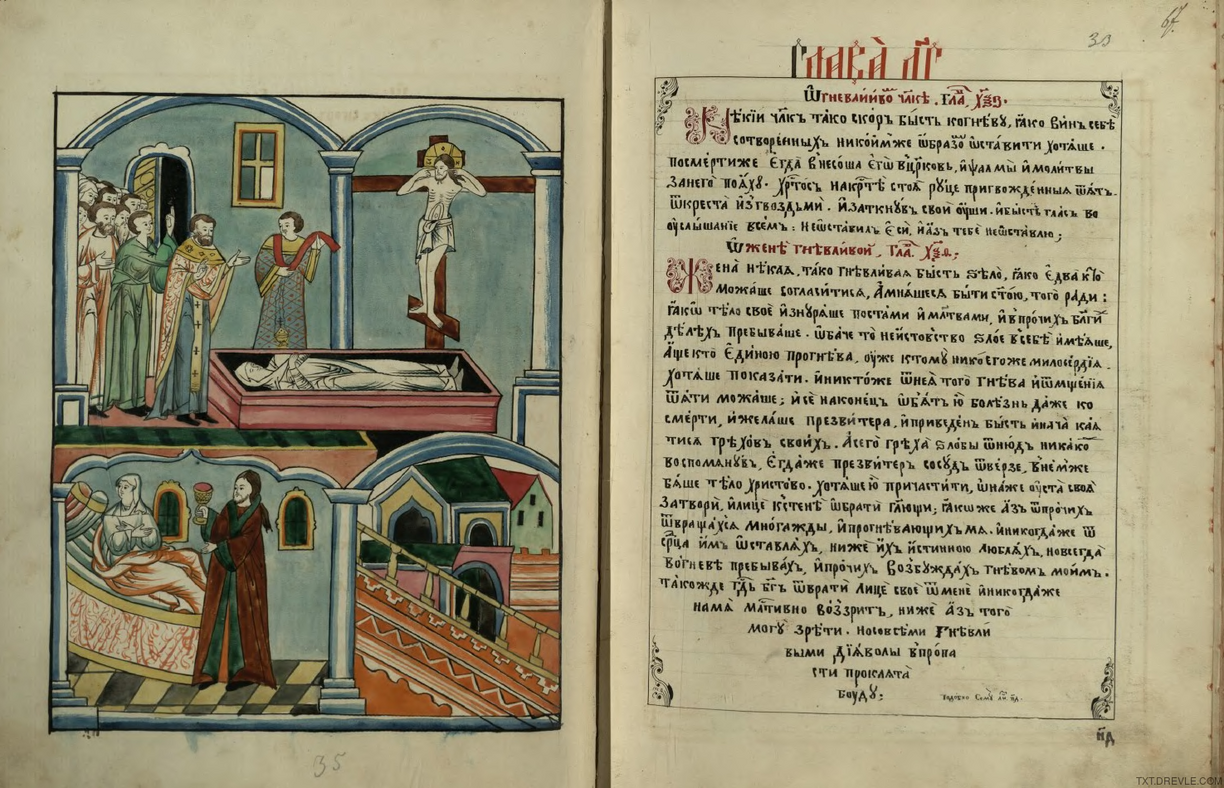 67
33
Глава лг
Ѿ гневливо члкѣ. Гла, хѯз.
Нѣкїи члкъ тако скоръ бысть ко гнѣву, ꙗко винъ себѣ
сотворенныхъ никоимже ѿбразо ѿставити хотѧше.
по смерти же егда внесоша его вцрковь, и ѱалмы и молитвы
за него поѧху. Хртосъ на кртѣ стоѧ руце пригвожденныѧ ѿѧтъ
ѿ креста из гвоздьми. и заткнувъ свои ѹши. и бысть гласъ во
ѹслышанїе всѣмъ: не ѿставилъ еси, и азъ тебе не ѿставлю;
Ѿ женѣ гнѣвливой, гла. хѯд.
Жена нѣкаѧ, тако гнѣвливаѧ бысть ѕѣло, ꙗко едва кто
можаше согласитисѧ, а мнѧшесѧ быти стою, того ради:
ꙗкѡ тѣло свое изнурѧше постами и млтвами, и в прочихъ блги
дѣлѣхъ пребываше. ѿбаче то неистовство ѕлое в себѣ имѣѧше,
аще кто единою прогнѣва, ѹже к тому никоегоже милосердїѧ
хотѧше показати. и никтоже ѿ неѧ того гнѣва и ѿмщенїѧ
ѿѧти можаше; и се наконецъ ѿбѧтъ ю болѣзнь даже ко
смерти, и желаше презвитера, и приведенъ бысть и нача каѧ
тисѧ грѣховъ своихъ. А сего грѣха ѕлобы ѿнюдъ никако
воспомѧнувъ, егдаже презвитеръ сосудъ ѿверзе, в немже
бѧше тѣло христово. хотѧше ю причастити, ѿнаже ѹста своѧ
затвори, и лице к стенѣ ѿбрати глющи; ꙗкоже азъ ѿ прочихъ
ѿвращахсѧ многажды, и прогнѣвающихъ мѧ. и никогдаже ѿ
срца имъ ѿставлѧхъ, ниже ихъ истинною люблѧхъ, но всегда
во гневѣ пребывахъ, и прочихъ возбуждахъ гнѣвомъ моимъ.
такожде гдь бгъ ѿврати лице свое ѿ мене и никогдаже
на мѧ млтивно воззритъ, ниже азъ того
могу зрѣти. но со всѣми гнѣвли
выми дїѧволы в пропа
сти проклѧта
боуду;
Подобно сему
нд
35
TXT.DREVLE.COM